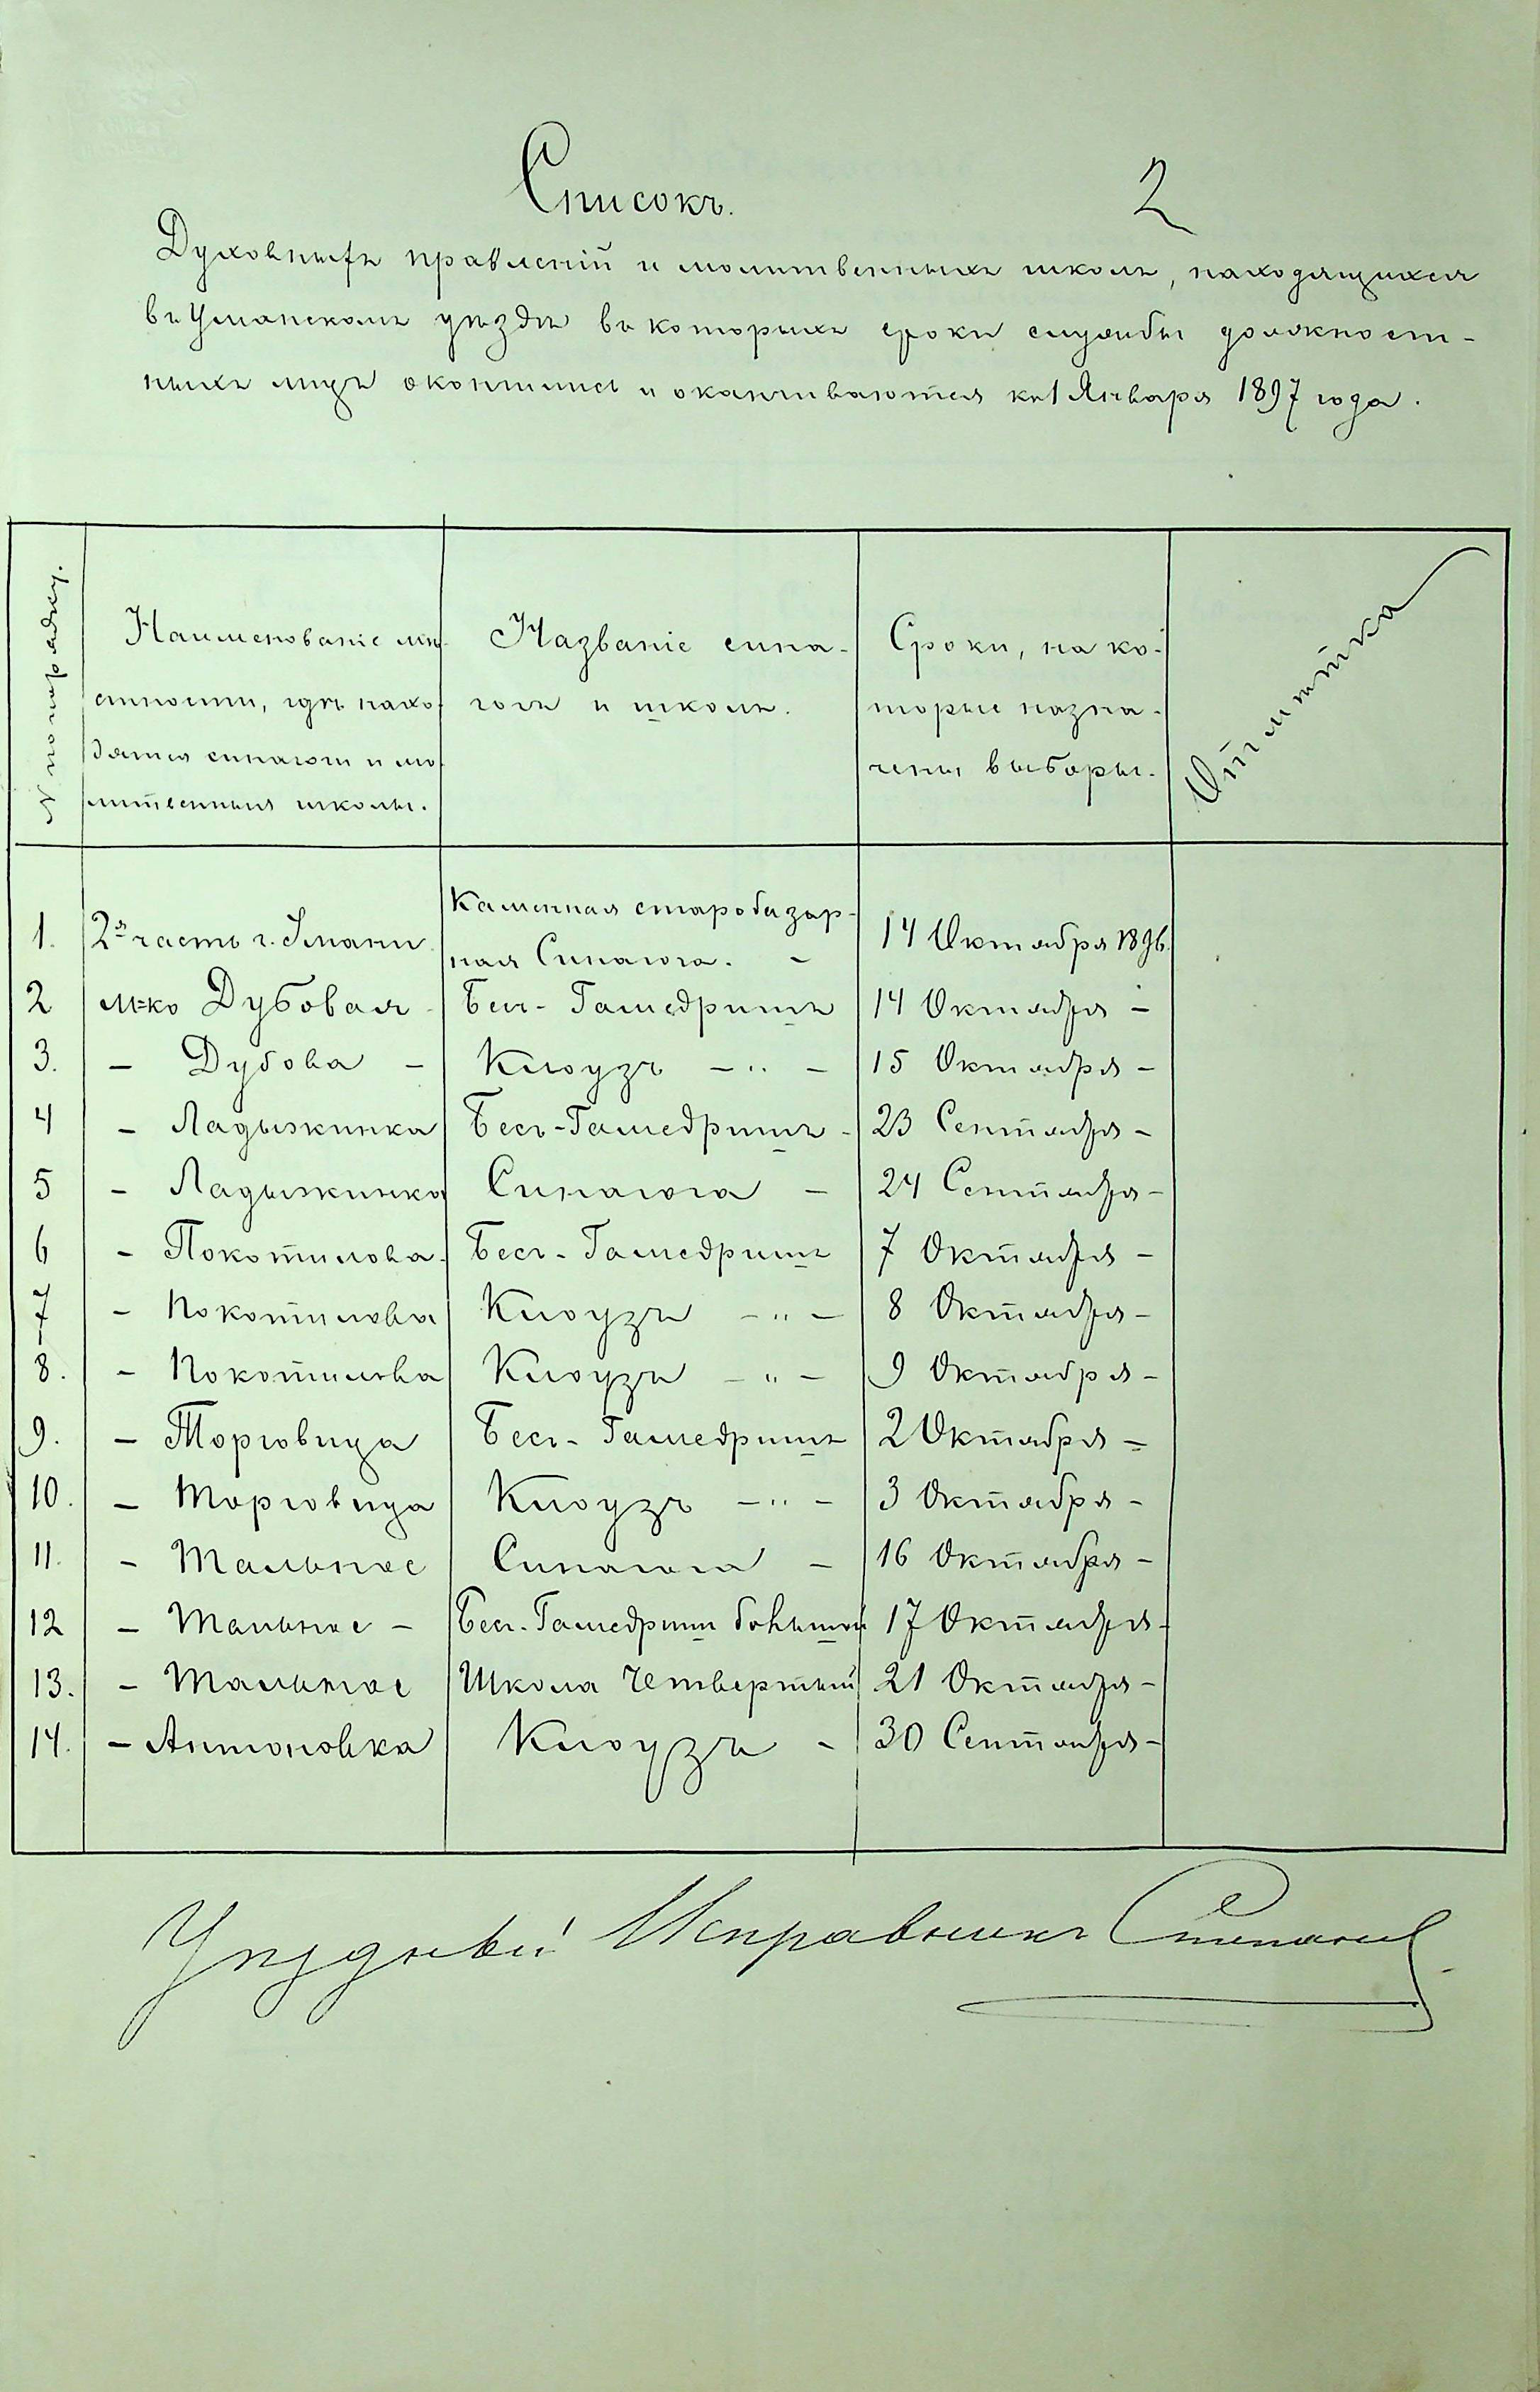 Списокъ.
2
Духовныхъ правленій и молитвенныхъ школъ, находящихся
въ Уманскомъ уѣздѣ въ которыхъ сроки службы должност-
ныхъ лицъ окончились и оканчиваются къ 1 Января 1897 года.
№ по порядку.
Наименованіе мѣ-
стности, гдѣ нахо-
дятся синагоги и мо-
литвенныя школы.
Названіе сина-
гогъ и школъ.
Сроки, на ко-
торые назна-
чены выборы.
Отмѣтка
1. 2я часть г. Умани Каменная старобазар-
ная Синагога. - 14 Октября 1896.
2 м-ко Дубовая - Бес-Гамедришъ 14 Октября -
3. - Дубова - Клоузъ - " - 15 Октября -
4 - Ладыжинка Бесъ-Гамедришъ - 23 Сентября -
5 - Ладыжинка Синагога - 24 Сентября -
6 - Покотилова - Бесъ-Гамедришъ 7 Октября -
7 - Покотилова Клоузъ - " - 8 Октября -
8. - Покотилова Клоузъ - " - 9 Октября -
9. - Торговица Бесъ-Гамедришъ 2 Октября -
10. - Торговица Клоузъ - " - 3 Октября -
11. - Тальное Синагога - 16 Октября -
12 - Тальное - Бесъ-Гамедриш большой 17 Октября -
13. - Тальное Школа Четвертый 21 Октября -
14. - Антоновка Клоузъ - 30 Сентября -
Уѣздный Исправникъ